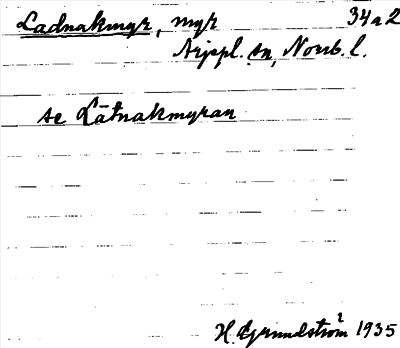 Ladnakmyr, myr 34a2
Arjepl. sn, Norrb. l.
se Lätnakmyran
H. Grundström 1935